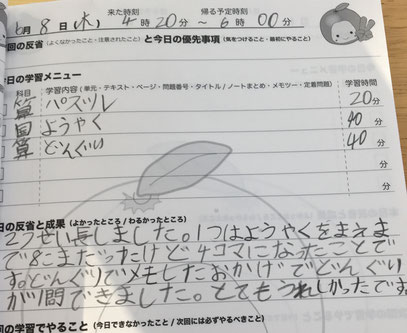 月8日(木) 来た時刻 4時20分～ 帰る予定時刻 6時00分
回の反省(よくなかったこと・注意されたこと)と今日の優先事項(気をつけること・最初にやること)
日の学習メニュー
科目 学習内容(単元・テキスト・ページ・問題番号・タイトル/ノートまとめ・メモツー・定着問題) 学習時間
算 パズル 20分
国 ようやく 40分
算 どんぐり 40分
分
分
日の反省と成果(よかったところ/わかるところ)
2つせい長しました。1つはようやくをまえま
で8こまだったけど4コマになったことで
す。どんぐりでメモしたおかげでどんぐり
が1問できました。とてもうれしかったです
回の学習でやること(今日できなかったこと/次回には必ずやるべきこと)